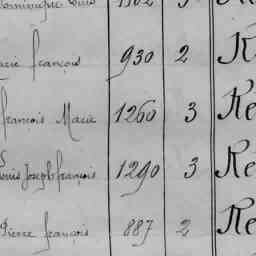 françois 930 2
françois Marie 1260 3 Re
Louis Joseph françois 1290 3 Re
Pierre françois 887 2 Re